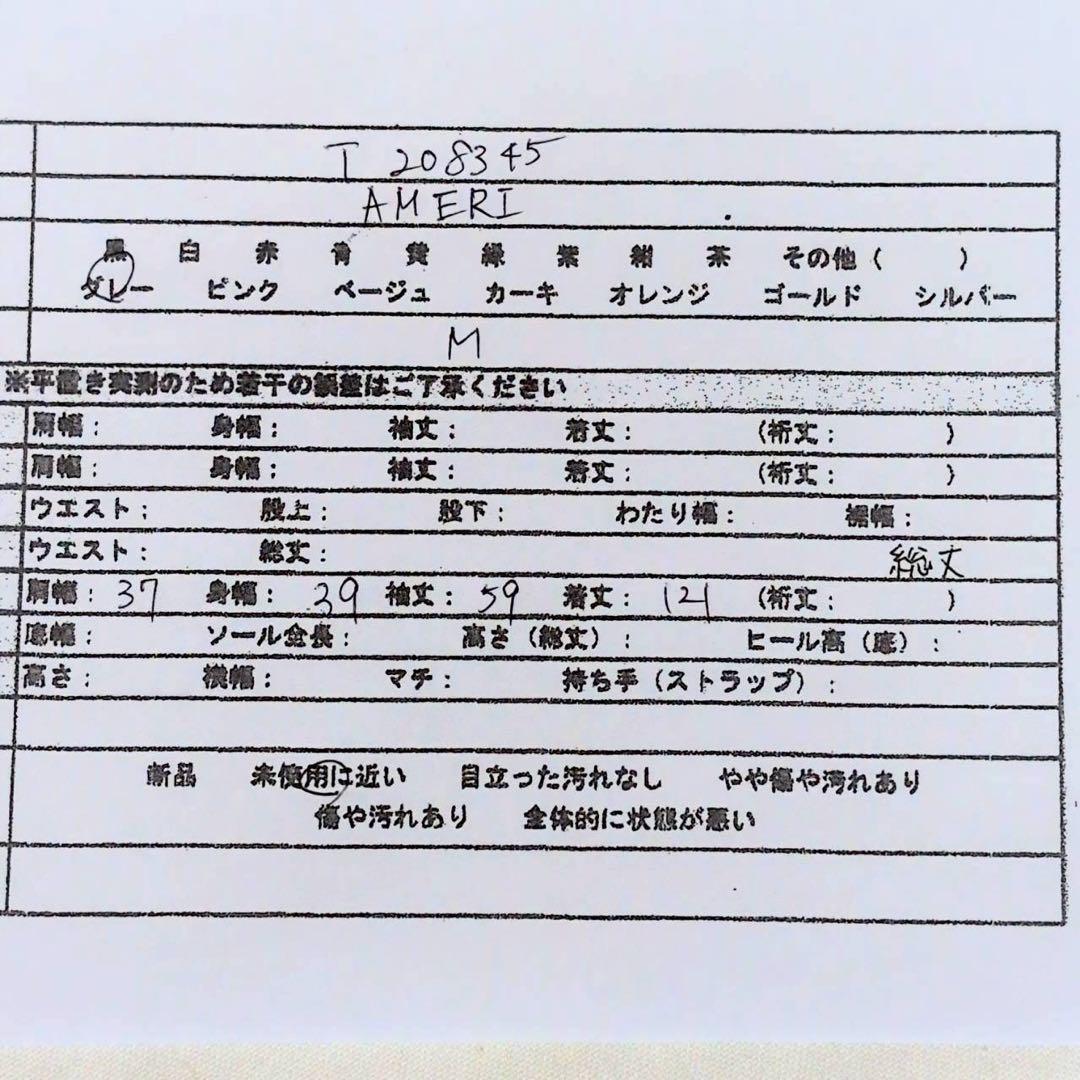 T 208345
AMERI
黒 白 赤 青 黄 緑 紫 紺 茶 その他（ ）
グレー ピンク ベージュ カーキ オレンジ ゴールド シルバー
M
※平置き実測のため若干の誤差はご了承ください
肩幅： 身幅： 袖丈： 着丈： （裄丈： ）
肩幅： 身幅： 袖丈： 着丈： （裄丈： ）
ウエスト： 股上： 股下： わたり幅： 裾幅：
ウエスト： 総丈： 総丈
肩幅：37 身幅：39 袖丈：59 着丈：121 （裄丈： ）
底幅： ソール全長： 高さ（総丈）： ヒール高（底）：
高さ： 横幅： マチ： 持ち手（ストラップ）：
新品 未使用に近い 目立った汚れなし やや傷や汚れあり
傷や汚れあり 全体的に状態が悪い